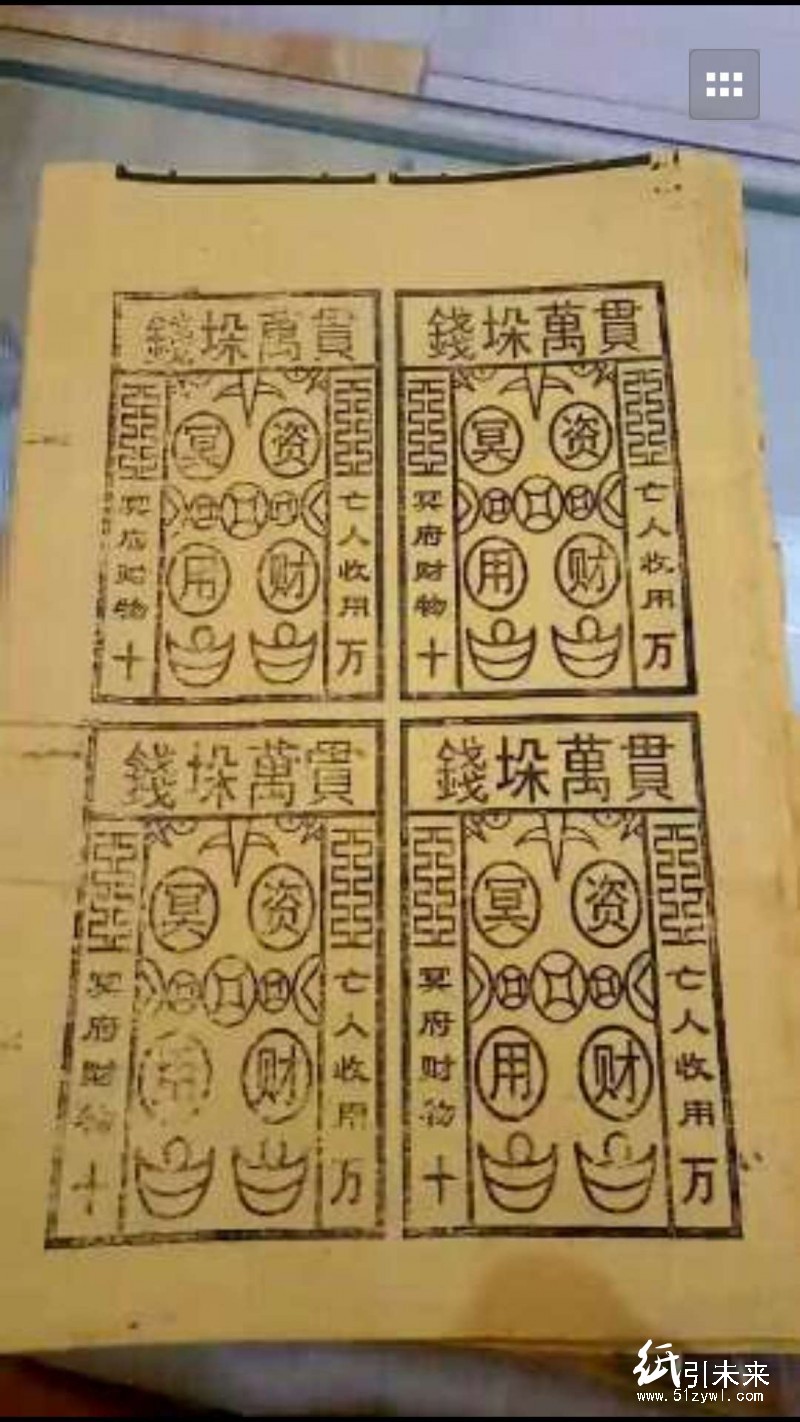 貫萬垛錢
亡人收用万
资财
冥用
冥府财物十
貫萬垛錢
亡人收用万
资财
冥用
冥府财物十
貫萬垛錢
亡人收用万
资财
冥用
冥府财物十
貫萬垛錢
亡人收用万
资财
冥
冥府财物十
纸引未来
www.51zywl.com